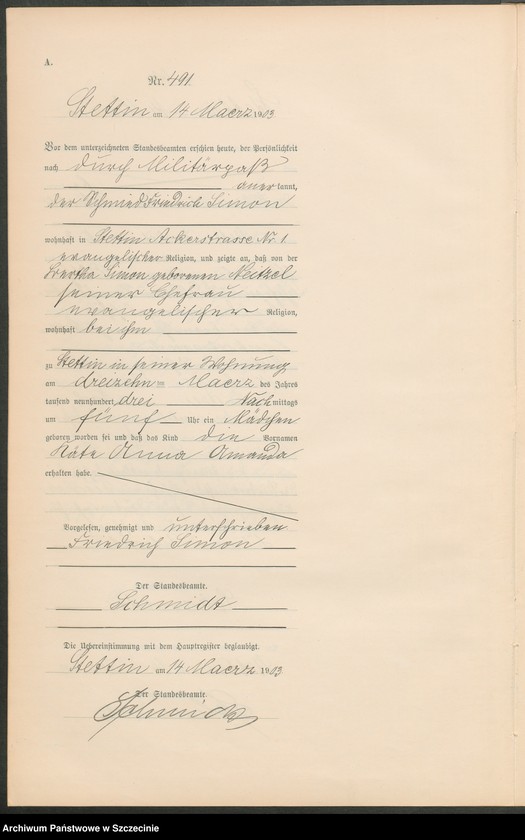 A.
Nr. 491.
Stettin am 14 Maerz 1903
Vor dem unterzeichneten Standesbeamten erschien heute, der Persönlichkeit
nach durch Militärpaß
anerkannt,
der Schmied Friedrich Simon
wohnhaft in Stettin Ackerstrasse Nr 1
evangelischer Religion, und zeigte an, daß von der
Bertha Simon geborenen Neitzel
seiner Ehefrau
evangelischer Religion,
wohnhaft bei ihm
zu Stettin in seiner Wohnung
am dreizehn ten Maerz des Jahres
tausend neunhundert drei Nachmittags
um fünf Uhr ein Mädchen
geboren worden sei und daß das Kind die Vornamen
Käte Anna Amanda
erhalten habe.
Vorgelesen, genehmigt und unterschrieben
Friedrich Simon
Der Standesbeamte.
Schmidt
Die Uebereinstimmung mit dem Hauptregister beglaubigt.
Stettin am 14 Maerz 1903
Der Standesbeamte.
Schmidt
Archiwum Państwowe w Szczecinie